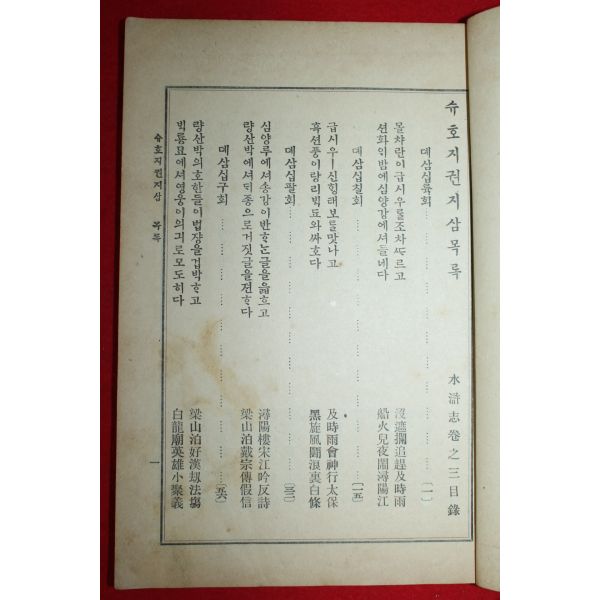 슈호지권지삼목록 水滸志卷之三目錄
뎨삼십륙회 ………… (一)
몰챠란이급시우를조차싸르고 沒遮攔追趕及時雨
션화ᄋᆞ밤에심양강에셔들네다 船火兒夜鬧潯陽江
뎨삼십칠회 ………… (一五)
급시우ㅣ신ᄒᆡᆼ태보를맛나고 及時雨會神行太保
흑션풍이랑리ᄇᆡᆨ됴와싸호다 黑旋風鬪浪裏白條
뎨삼십팔회 ………… (三二)
심양루에셔송강이반ᄒᆞᄂᆞᆫ글을읇흐고 潯陽樓宋江吟反詩
량산박에셔ᄃᆡ종으로거짓글을젼ᄒᆞ다 梁山泊戴宗傳假信
뎨삼십구회 ………… (五六)
량산박의호한들이법쟝을겁박ᄒᆞ고 梁山泊好漢刼法塲
ᄇᆡᆨ룡묘에셔영웅이의긔로모도히다 白龍廟英雄小聚義
슈호지권지삼 목록 一